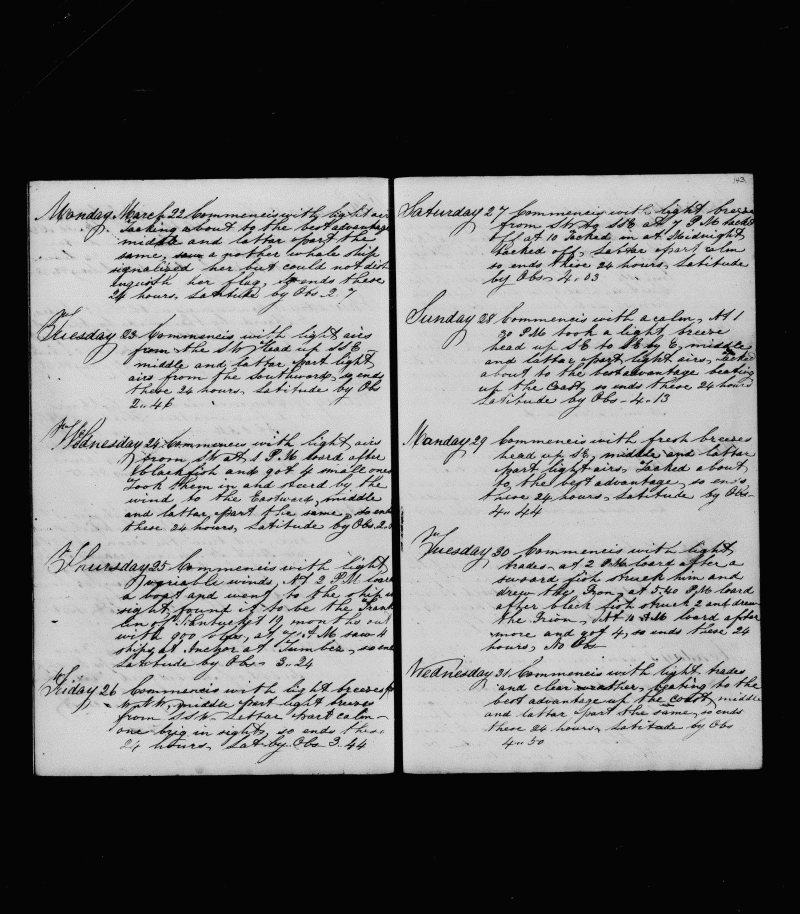 Monday March 22 Commencis with light air
Tacking about to the best advantage
middle and lattar part the
same, saw a nother whale ship
signalised her but could not dist
inguish her flag, so ends these
24 hours. Latitude by Obs 2.. 7
Tuesday 23 Commencis with light airs
from the SW Head up SSE
middle and lattar part light
airs from the southward, so ends
these 24 hours, Latitude by Obs
2.. 46
Wednesday 24 Commencis with light airs
from SW at 1 P.M loard after
blackfish and got 4 small ones
Took them in and steard by the
wind to the Eastward, middle
and lattar part the same, so ends
these 24 hours, Latitude by Obs 2.
Thursday 25 Commencis with light
variable winds, At 2 P.M loard
a boat and went to the ship in
sight found it to be the Frank
lin of Nantucket 19 months out
with 900 bbls, at 7. P.M saw 4
ships at Anchor at Tumbes, same
Latitude by Obs 3..24
Friday 26 Commencis with light breezes
WNW, middle part light breezes
from SSW. Lattar part calm
one brig in sight, so ends these
24 hours, Lat by Obs 3..44
143
Saturday 27 Commencis with light breeze
from SW by SSE at 7 P.M tacked
off at 10 Tacked in at Midnight
tacked off, Lattar part calm
so ends these 24 hours, Latitude
by Obs 4..03
Sunday 28 Commencis with a calm, At 1
30 P.M took a light breeze
head up SE to SE by E, middle
and lattar part light airs, tacked
about to the best advantage beating
up the Coast, so ends these 24 hours
Latitude by Obs 4..13
Manday 29 Commencis with fresh breezes
head up SE, middle and lattar
part light airs, Tacked about
to the best advantage, so ends
these 24 hours, Latitude by Obs
4.. 44
Tuesday 30 Commencis with light
trades, at 2 P.M loard after a
sword fish struck him and
drew the Iron, at 5.40 P.M loard
after black fish struck 2 and drew
the Irion, At 10 loard after
more and got 4, so ends these 24
hours, No Obs
Wednesday 31 Commencis with light trades
and clear weather, beating to the
best advantage up the coast, middle
and lattar part the same, so ends
these 24 hours, Latitude by Obs
4.. 50